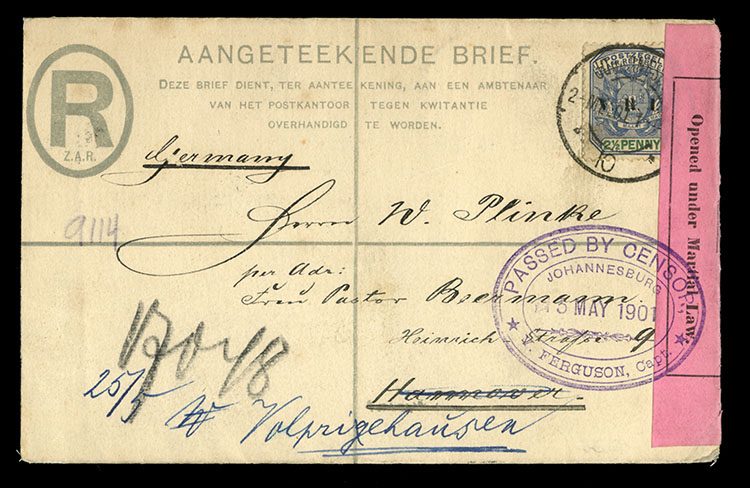 AANGETEEKENDE BRIEF.
DEZE BRIEF DIENT, TER AANTEEKENING, AAN EEN AMBTENAAR
VAN HET POSTKANTOOR TEGEN KWITANTIE
OVERHANDIGD TE WORDEN.
R
Z.A.R.
POSTZEGEL
V. R. I.
2½ PENNY
Opened under Martial Law.
Germany
9114
Herrn W. Plinke
per Adr:
Frau Pastor Beermann.
Heinrich Strasse 9
Hannover.
PASSED BY CENSOR,
JOHANNESBURG
3 MAY 1901
FERGUSON, Capt.
25/5
Volprigehausen